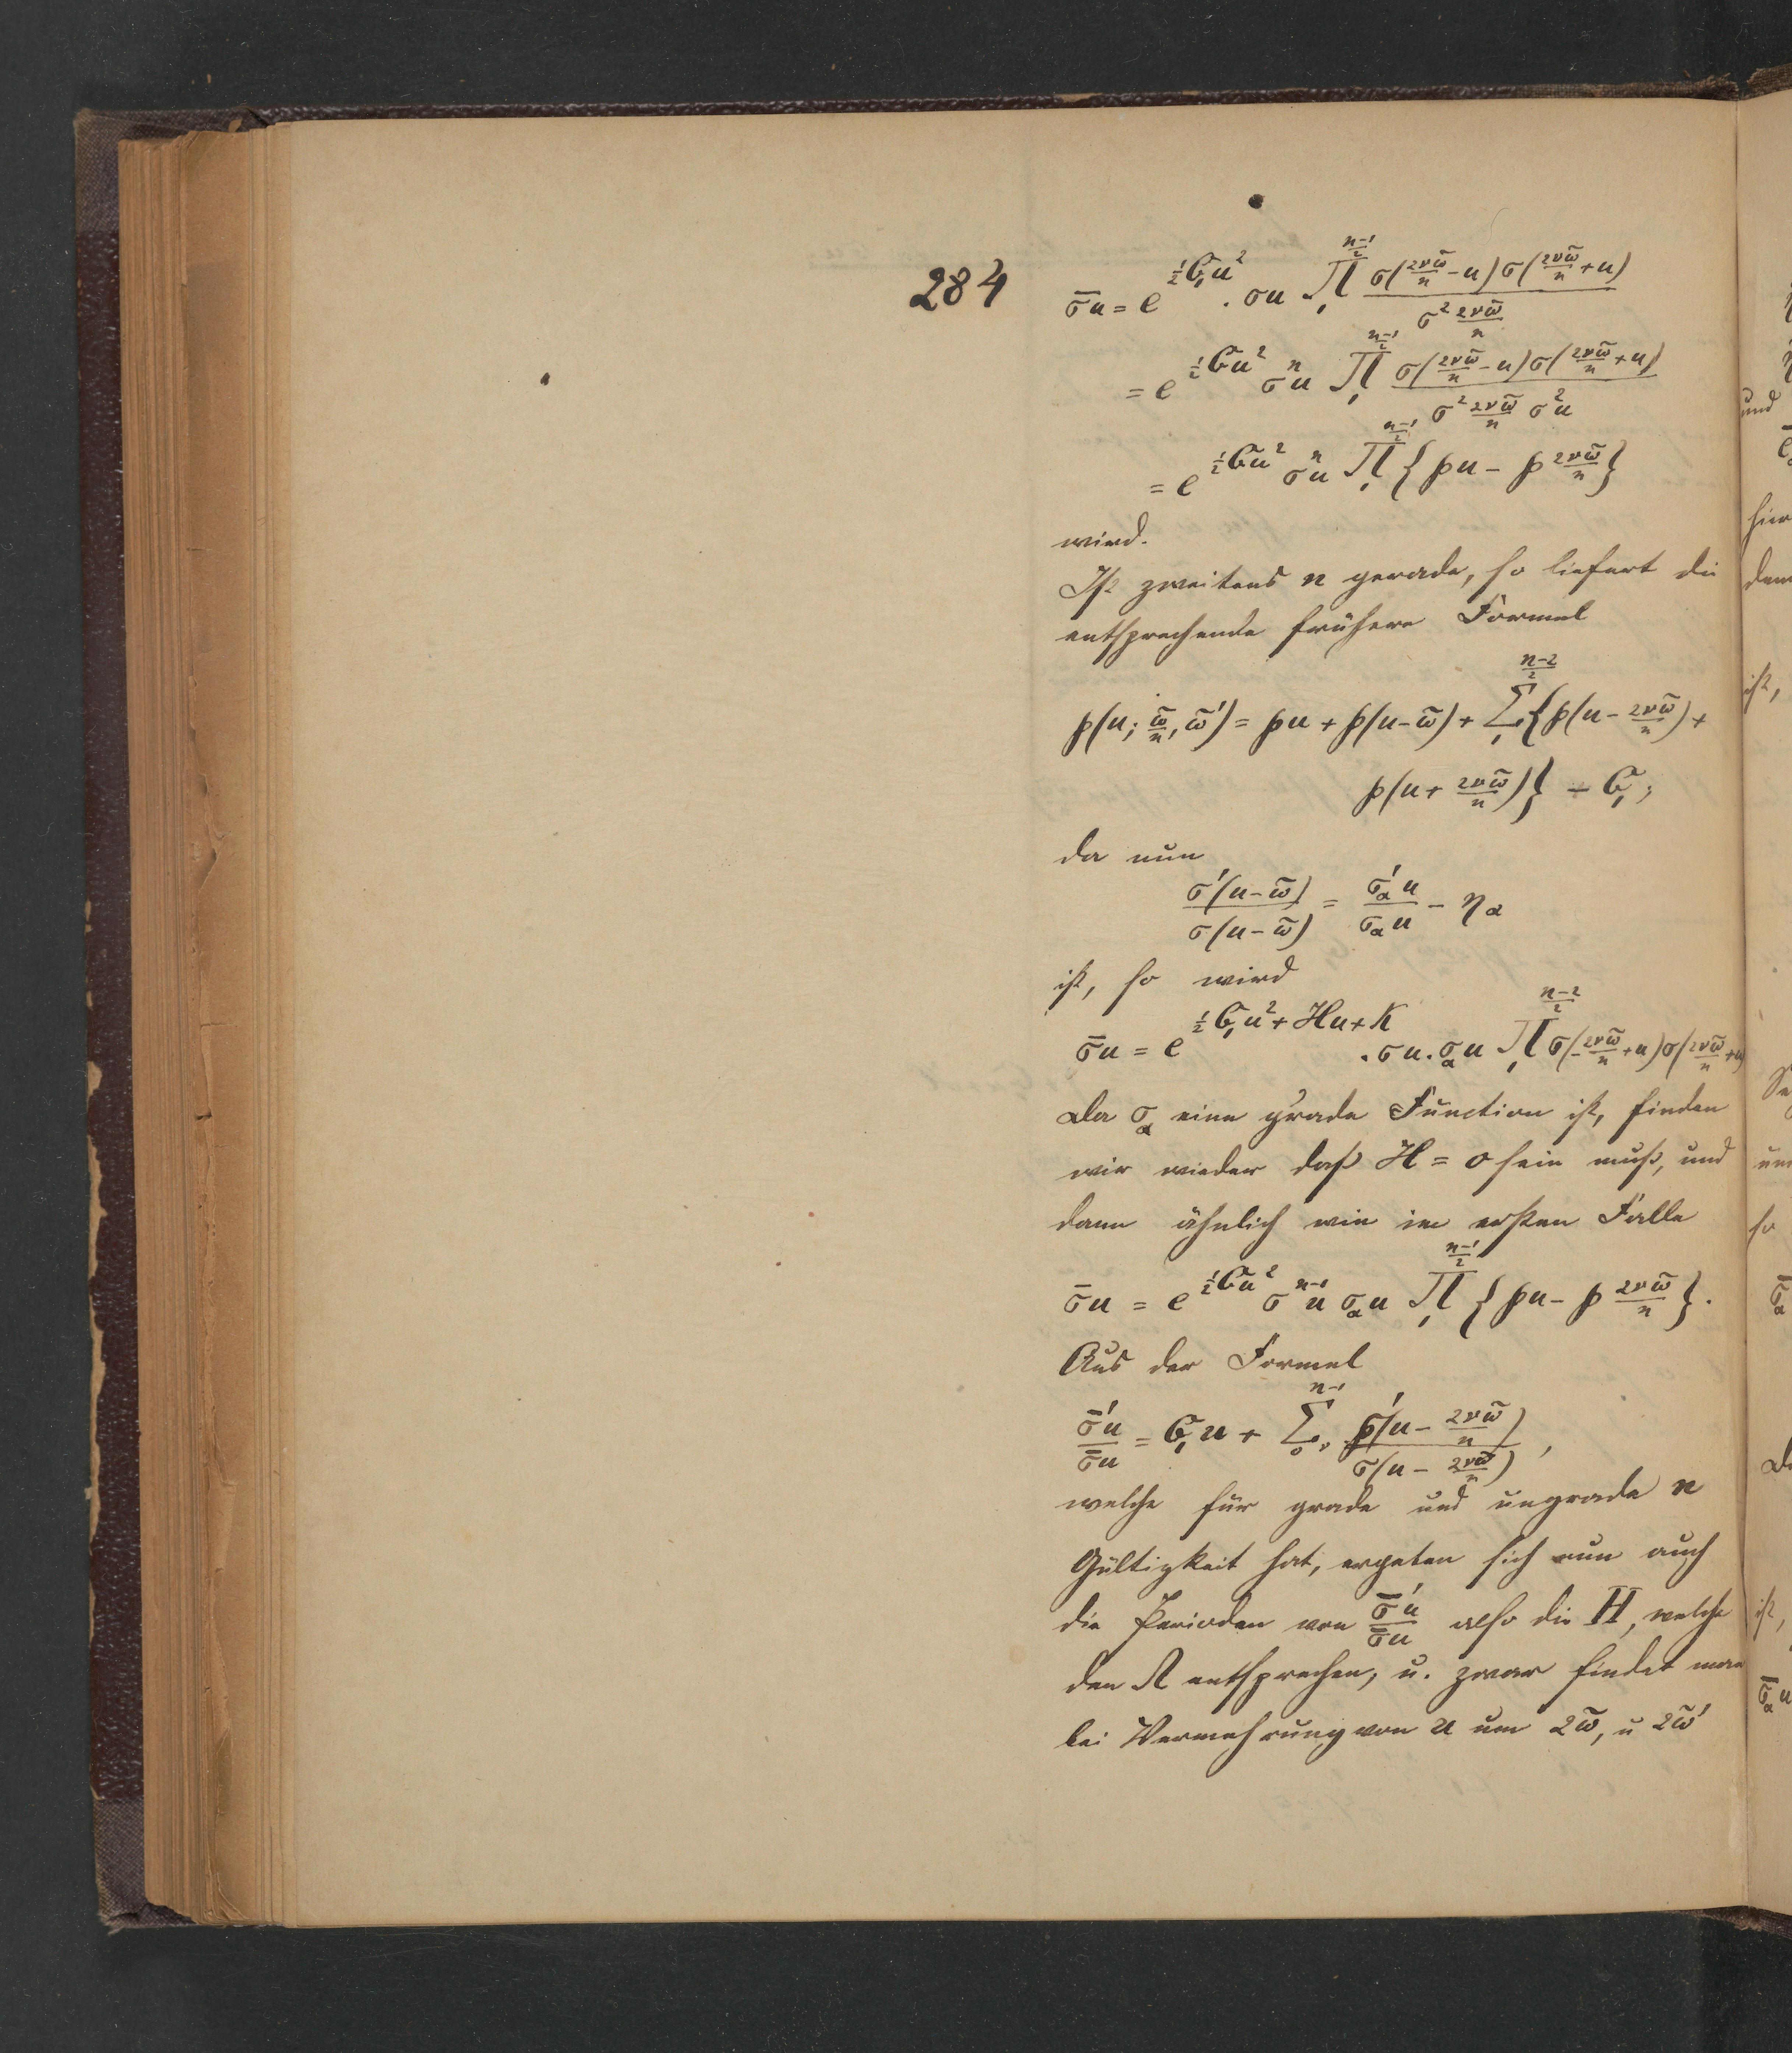 284
σ̄u = e^{½G₁u²} · σu ∏₁^{(n-1)/2} σ(2νω̃/n - u) σ(2νω̃/n + u) / σ² 2νω̃/n
= e^{½G̃u²} σⁿu ∏₁^{(n-1)/2} σ(2νω̃/n - u) σ(2νω̃/n + u) / σ² 2νω̃/n σ²u
= e^{½G̃u²} σⁿu ∏₁^{(n-1)/2} {℘u - ℘ 2νω̃/n}
wird.
Ist zweitens n gerade, so liefert die
entsprechende frühere Formel
℘(u; ω̃/n, ω̃') = ℘u + ℘(u-ω̃) + ∑₁^{(n-2)/2} {℘(u - 2νω̃/n) +
℘(u + 2νω̃/n)} - G₁;
da nun
σ'(u-ω̃) / σ(u-ω̃) = σ'_α u / σ_α u - η_α
ist, so wird
σ̄u = e^{½G₁u² + Hu + K} · σu · σ_α u ∏₁^{(n-2)/2} σ(-2νω̃/n + u) σ(2νω̃/n + u)
Da σ_α eine grade Function ist, finden
wir wieder daß H = 0 sein muß, und
dann ähnlich wie im ersten Falle
σ̄u = e^{½G̃u²} σ^{n-1}u σ_α u ∏₁^{(n-1)/2} {℘u - ℘ 2νω̃/n}.
Aus der Formel
σ̄'u / σ̄u = G₁u + ∑₀ν^{n-1} σ'(u - 2νω̃/n) / σ(u - 2νω̃/n),
welche für grade und ungrade n
Gültigkeit hat, ergeben sich nun auch
die Perioden von σ̄'u / σ̄u also die H, welche
den Ω entsprechen, u. zwar findet man
bei Vermehrung von u um 2ω̃, u 2ω̃'